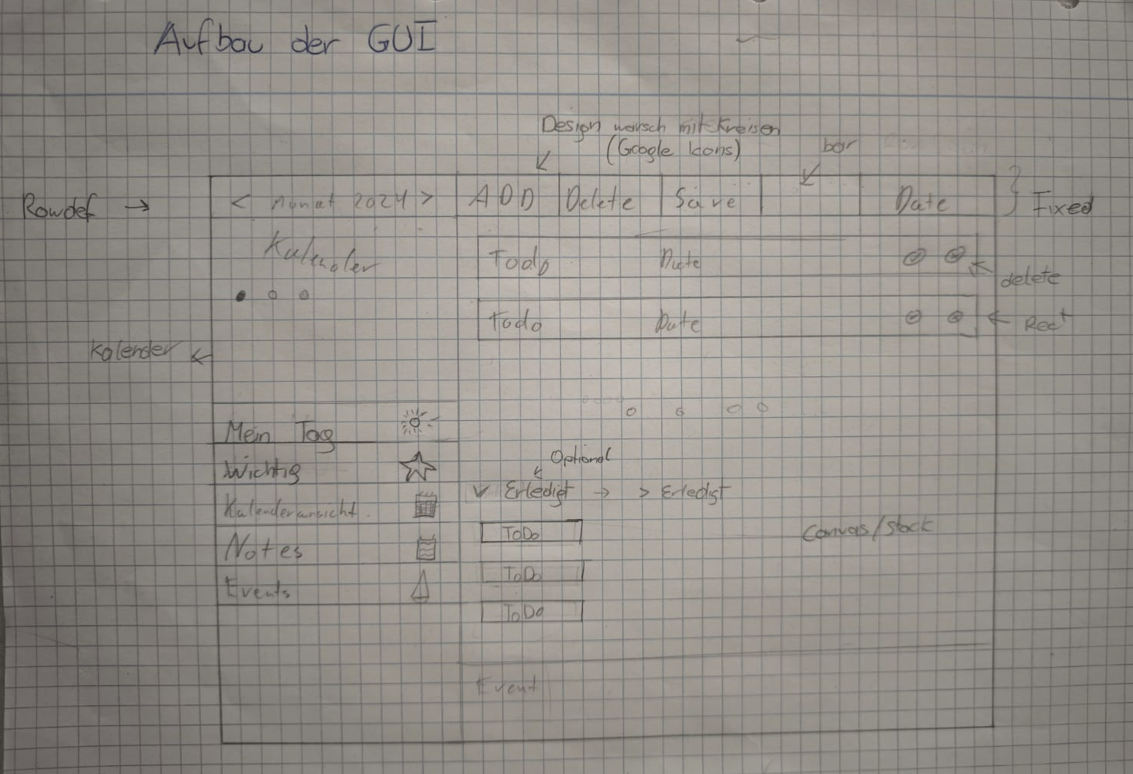 Aufbau der GUI
Design warsch mit Kreisen
(Google Icons)
bar
Rowdef →
< Monat 2024 >
ADD
Delete
Save
Date
Fixed
Kalender
Todo Date
delete
Todo Date
Rect
Kalender
Mein Tag
Wichtig
Kalenderansicht
Notes
Events
Optional
Erledigt → > Erledigt
ToDo
ToDo
ToDo
Canvas/stack
Event